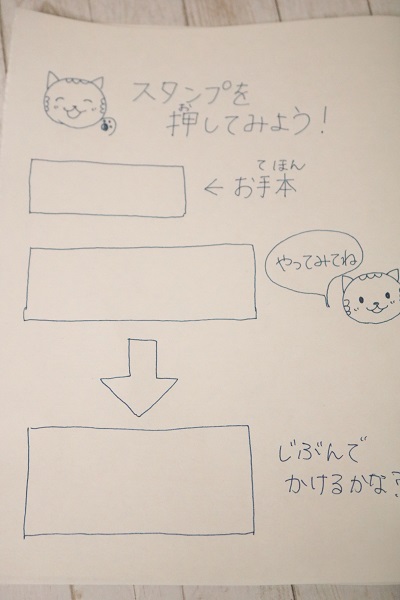 スタンプを
押してみよう!
お
← お手本
てほん
やってみてね
じぶんで
かけるかな?